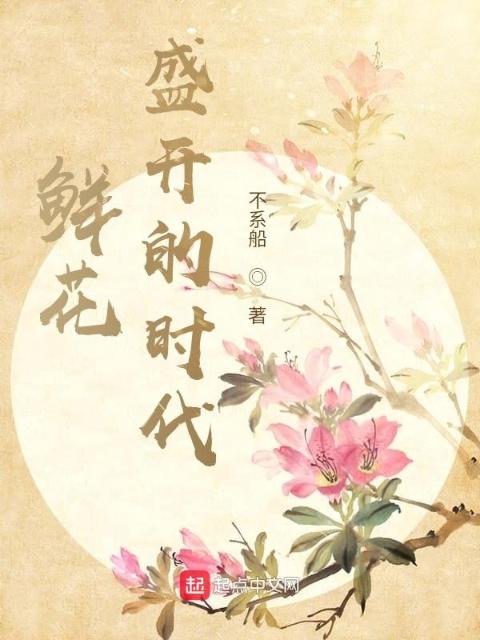 鲜花
盛开的时代
不系船 ◎ 著
起 起点中文网